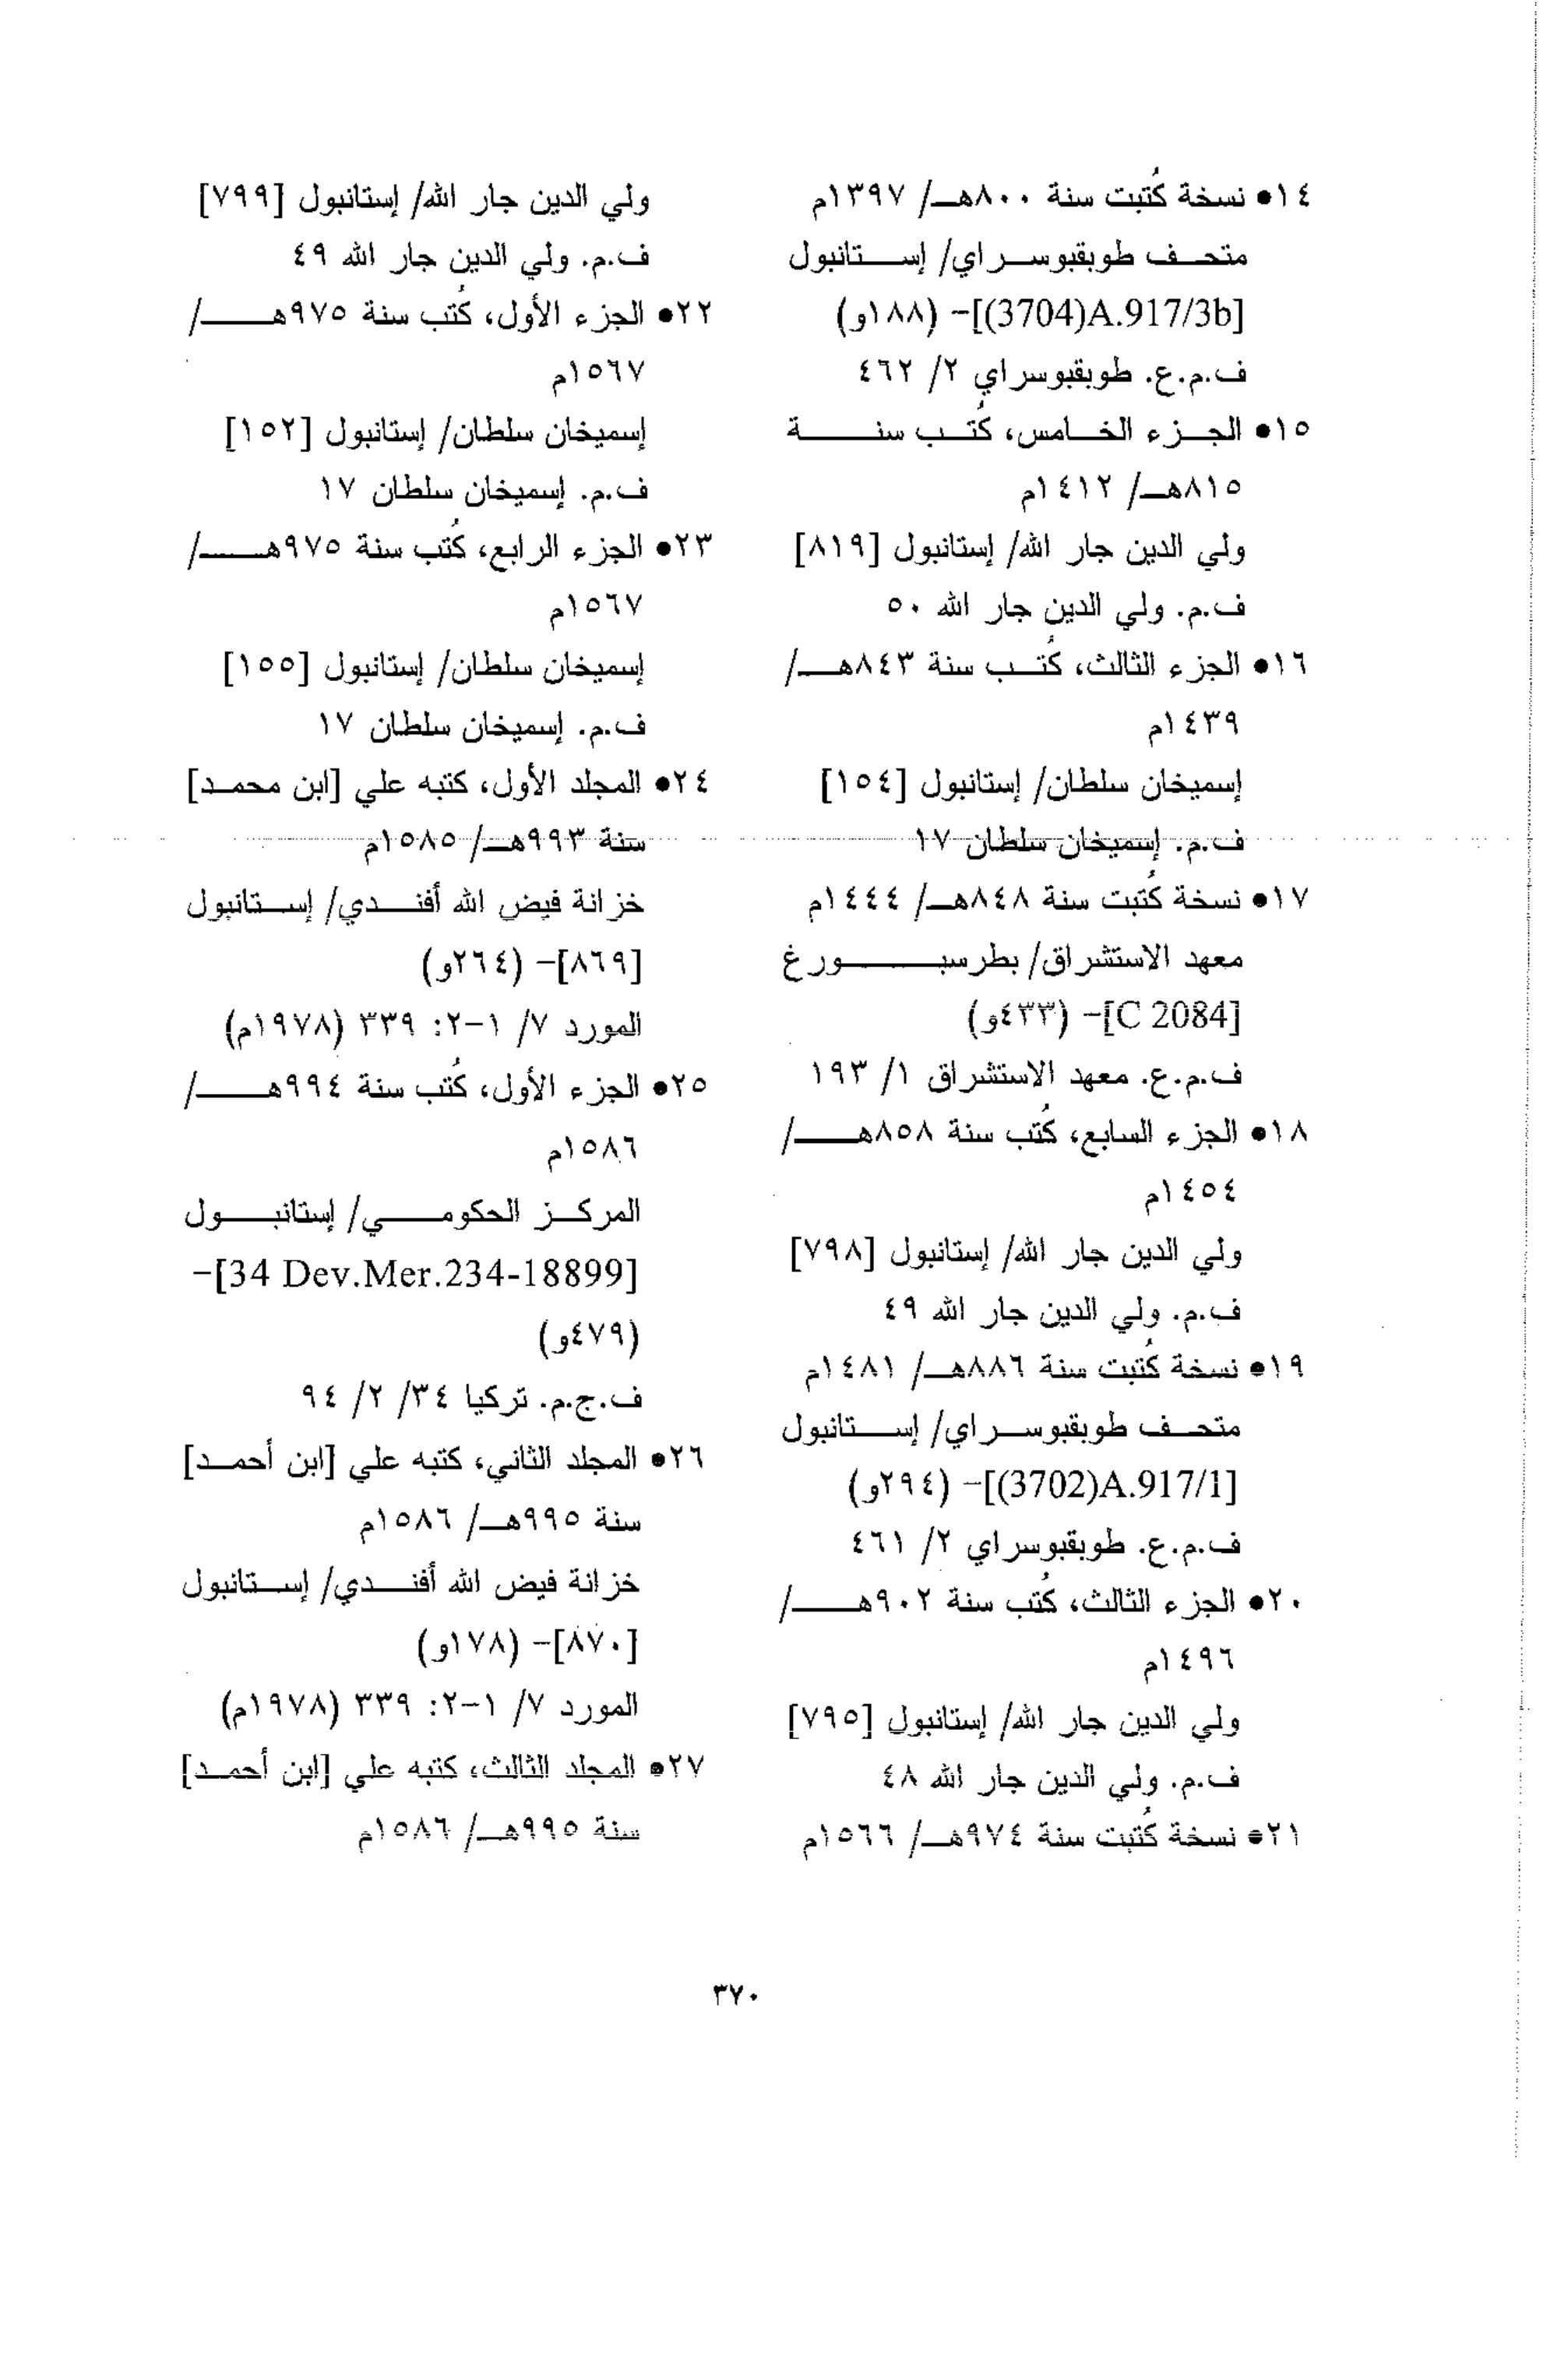 ١٤● نسخة كُتبت سنة ٨٠٠هـ/ ١٣٩٧م
متحف طوبقبوسراي/ إستانبول
[A.917/3b(3704)]- (١٨٨و)
ف.م.ع. طوبقبوسراي ٢/ ٤٦٢
١٥● الجزء الخامس، كُتب سنة
٨١٥هـ/ ١٤١٢م
ولي الدين جار الله/ إستانبول [٨١٩]
ف.م. ولي الدين جار الله ٥٠
١٦● الجزء الثالث، كُتب سنة ٨٤٣هـ/
١٤٣٩م
إسميخان سلطان/ إستانبول [١٥٤]
ف.م. إسميخان سلطان ١٧
١٧● نسخة كُتبت سنة ٨٤٨هـ/ ١٤٤٤م
معهد الاستشراق/ بطرسبورغ
[C 2084]- (٤٣٣و)
ف.م.ع. معهد الاستشراق ١/ ١٩٣
١٨● الجزء السابع، كُتب سنة ٨٥٨هـ/
١٤٥٤م
ولي الدين جار الله/ إستانبول [٧٩٨]
ف.م. ولي الدين جار الله ٤٩
١٩● نسخة كُتبت سنة ٨٨٦هـ/ ١٤٨١م
متحف طوبقبوسراي/ إستانبول
[A.917/1(3702)]- (٢٩٤و)
ف.م.ع. طوبقبوسراي ٢/ ٤٦١
٢٠● الجزء الثالث، كُتب سنة ٩٠٢هـ/
١٤٩٦م
ولي الدين جار الله/ إستانبول [٧٩٥]
ف.م. ولي الدين جار الله ٤٨
٢١● نسخة كُتبت سنة ٩٧٤هـ/ ١٥٦٦م
ولي الدين جار الله/ إستانبول [٧٩٩]
ف.م. ولي الدين جار الله ٤٩
٢٢● الجزء الأول، كُتب سنة ٩٧٥هـ/
١٥٦٧م
إسميخان سلطان/ إستانبول [١٥٢]
ف.م. إسميخان سلطان ١٧
٢٣● الجزء الرابع، كُتب سنة ٩٧٥هـ/
١٥٦٧م
إسميخان سلطان/ إستانبول [١٥٥]
ف.م. إسميخان سلطان ١٧
٢٤● المجلد الأول، كتبه علي [ابن محمد]
سنة ٩٩٣هـ/ ١٥٨٥م
خزانة فيض الله أفندي/ إستانبول
[٨٦٩]- (٢٦٤و)
المورد ٧/ ١-٢: ٣٣٩ (١٩٧٨م)
٢٥● الجزء الأول، كُتب سنة ٩٩٤هـ/
١٥٨٦م
المركز الحكومي/ إستانبول
[34 Dev.Mer.234-18899]-
(٤٧٩و)
ف.ج.م. تركيا ٣٤/ ٢/ ٩٤
٢٦● المجلد الثاني، كتبه علي [ابن أحمد]
سنة ٩٩٥هـ/ ١٥٨٦م
خزانة فيض الله أفندي/ إستانبول
[٨٧٠]- (١٧٨و)
المورد ٧/ ١-٢: ٣٣٩ (١٩٧٨م)
٢٧● المجلد الثالث، كتبه علي [ابن أحمد]
سنة ٩٩٥هـ/ ١٥٨٦م
٣٧٠